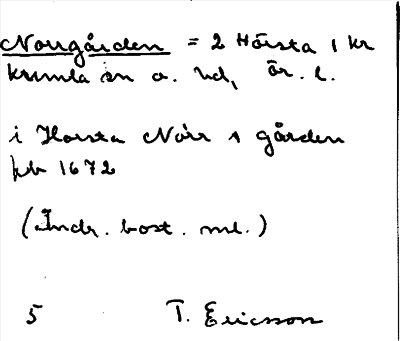 Norrgården = 2 Hörsta 1 kr
krumla sn o. hd, ör. l.
i Horsta Når s gården
jb 1672
(Ändr. bost. ml.)
5 T. Ericsson